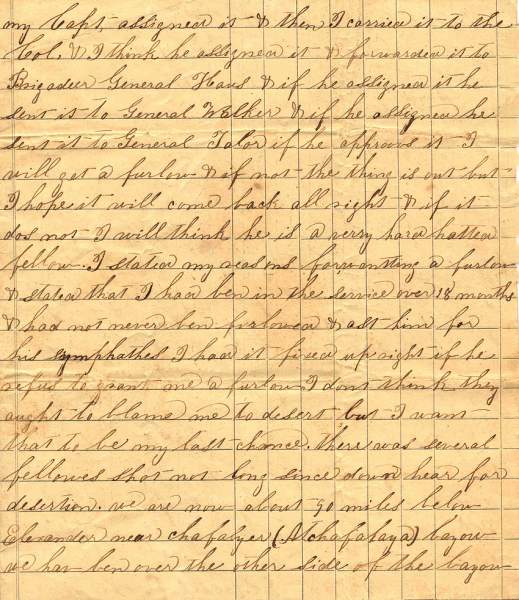 my Capt, assigned it & then I carried it to the
Col. & I think he assigned it & forwarded it to
Brigadeer General Haws & if he assigned it he
sent it to General Walker & if he assigned he
sent it to General Talor if he approovs it I
will get a furlow & if not the thing is out but
I hope it will come back all right & if it
dos not I will think he is a verry hard hatted
fellow. I stated my reasons for wantting a furlow
& stated that I had ben in the service over 18 months
& had not never ben furlowed & ast him for
his symphathes I had it fixed up right if he
refus to grant me a furlow I dont think they
aught to blame me to desert but I want
that to be my last chance. there was several
fellows shot not long since down hear for
desertion. we are now about 90 miles below
Elexander near chafalyer (Atchafalaya) bayow
we hav ben over the other side of the bayow